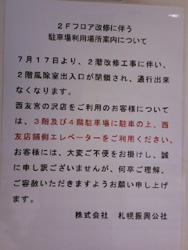 ２Ｆフロア改修に伴う
駐車場利用場所案内について
７月１７日より、２階改修工事に伴い、
２階風除室出入口が閉鎖され、通行出来
なくなります。
西友宮の沢店をご利用のお客様について
は、３階及び４階駐車場に駐車の上、西
友店舗側エレベーターをご利用ください。
お客様には、大変ご不便をお掛けし、誠
に申し訳ございませんが、何卒ご理解、
ご容赦いただきますようお願い申し上げ
ます。
株式会社　札幌振興公社